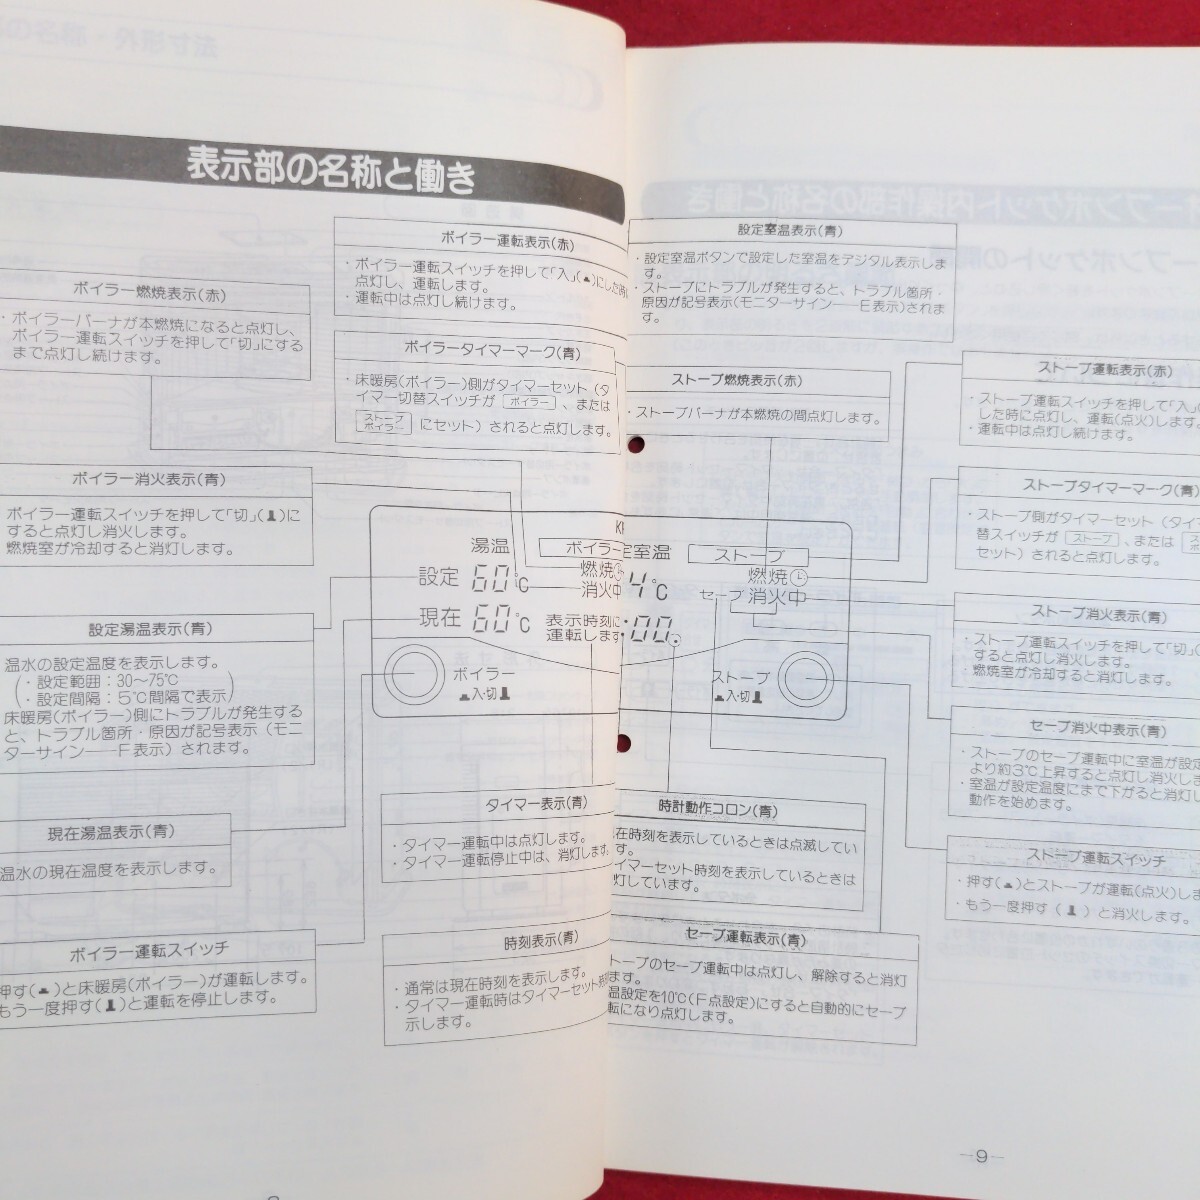 表示部の名称と働き
ボイラー運転表示(赤)
・ボイラー運転スイッチを押して「入」(
)にした時
点灯し、運転します。
・運転中は点灯し続けます。
ボイラー燃焼表示(赤)
・ボイラーバーナが本燃焼になると点灯し、
ボイラー運転スイッチを押して「切」にする
まで点灯し続けます。
ボイラータイマーマーク(青)
・床暖房(ボイラー)側がタイマーセット(タ
イマー切替スイッチが ボイラー 、または
ストーブ
ボイラー にセット)されると点灯します。
ボイラー消火表示(青)
ボイラー運転スイッチを押して「切」( )に
すると点灯し消火します。
燃焼室が冷却すると消灯します。
設定湯温表示(青)
温水の設定温度を表示します。
(・設定範囲:30〜75℃
・設定間隔:5℃間隔で表示)
床暖房(ボイラー)側にトラブルが発生する
と、トラブル箇所・原因が記号表示(モニ
ターサイン――F表示)されます。
現在湯温表示(青)
温水の現在温度を表示します。
ボイラー運転スイッチ
押す( )と床暖房(ボイラー)が運転します。
もう一度押す( )と運転を停止します。
湯温
設定 60℃
現在 60℃
ボイラー
燃焼
消火中
表示時刻に
運転します
ボイラー
入・切
タイマー表示(青)
・タイマー運転中は点灯します。
・タイマー運転停止中は、消灯します。
時刻表示(青)
・通常は現在時刻を表示します。
・タイマー運転時はタイマーセット時刻
示します。
設定室温表示(青)
・設定室温ボタンで設定した室温をデジタル表示しま
す。
・ストーブにトラブルが発生すると、トラブル箇所・
原因が記号表示(モニターサイン――E表示)されま
す。
ストーブ燃焼表示(赤)
・ストーブバーナが本燃焼の間点灯します。
ストーブ運転表示(赤)
・ストーブ運転スイッチを押して「入」(
した時に点灯し、運転(点火)します。
・運転中は点灯し続けます。
ストーブタイマーマーク(青)
・ストーブ側がタイマーセット(タイ
替スイッチが ストーブ 、または
セット)されると点灯します。
定室温
4℃
ストーブ
燃焼
セーブ 消火中
:00.
ストーブ
入・切
ストーブ消火表示(青)
・ストーブ運転スイッチを押して「切」(
すると点灯し消火します。
・燃焼室が冷却すると消灯します。
セーブ消火中表示(青)
・ストーブのセーブ運転中に室温が設定
より約3℃上昇すると点灯し消火しま
・室温が設定温度にまで下がると消灯し
動作を始めます。
時計動作コロン(青)
在時刻を表示しているときは点滅してい
す。
イマーセット時刻を表示しているときは
灯しています。
ストーブ運転スイッチ
・押す( )とストーブが運転(点火)しま
・もう一度押す( )と消火します。
セーブ運転表示(青)
トーブのセーブ運転中は点灯し、解除すると消灯
ます。
温設定を10℃(F点設定)にすると自動的にセーブ
転になり点灯します。
—9—